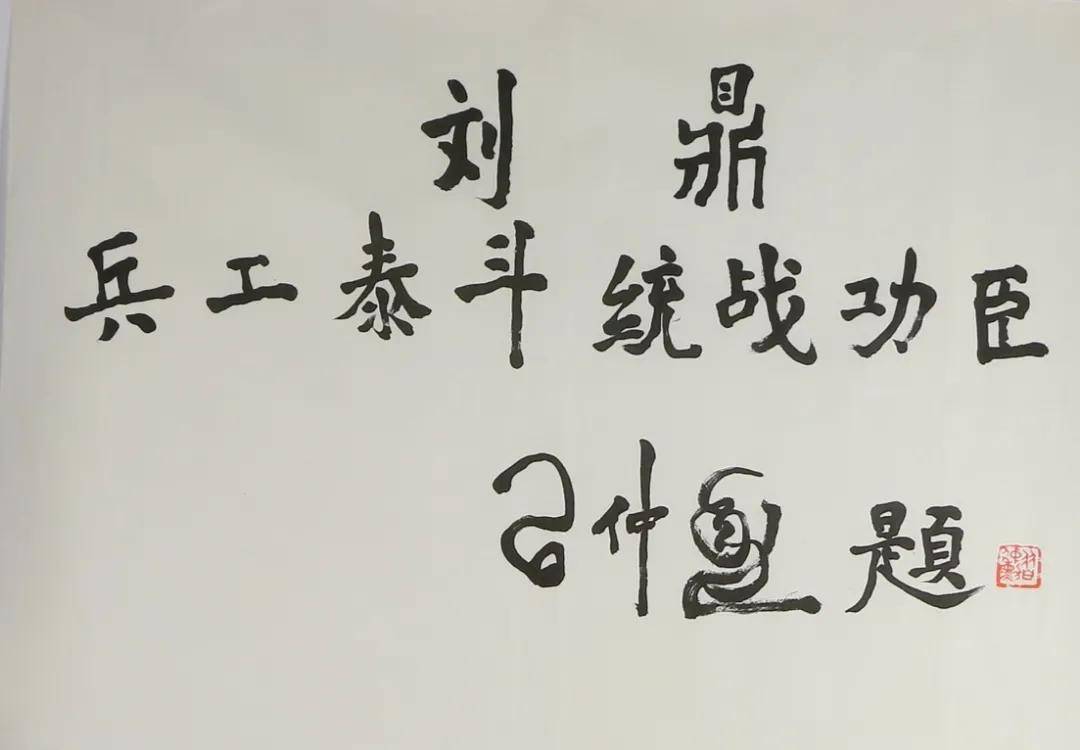 刘鼎
兵工泰斗统战功臣
习仲勋题